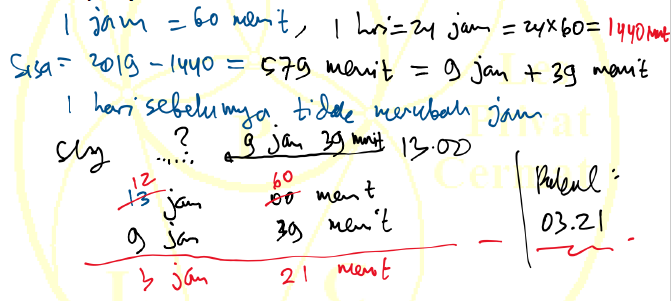 1 jam = 60 menit, 1 hri = 24 jam = 24x60 = 1440 mnt
Sisa = 2019 - 1440 = 579 menit = 9 jam + 39 menit
1 hari sebelumnya tidak merubah jam
? 9 jam 39 mnit 13.00
12 60
13 jam 00 menit
9 jam 39 menit
3 jam 21 menit
Pukul :
03.21